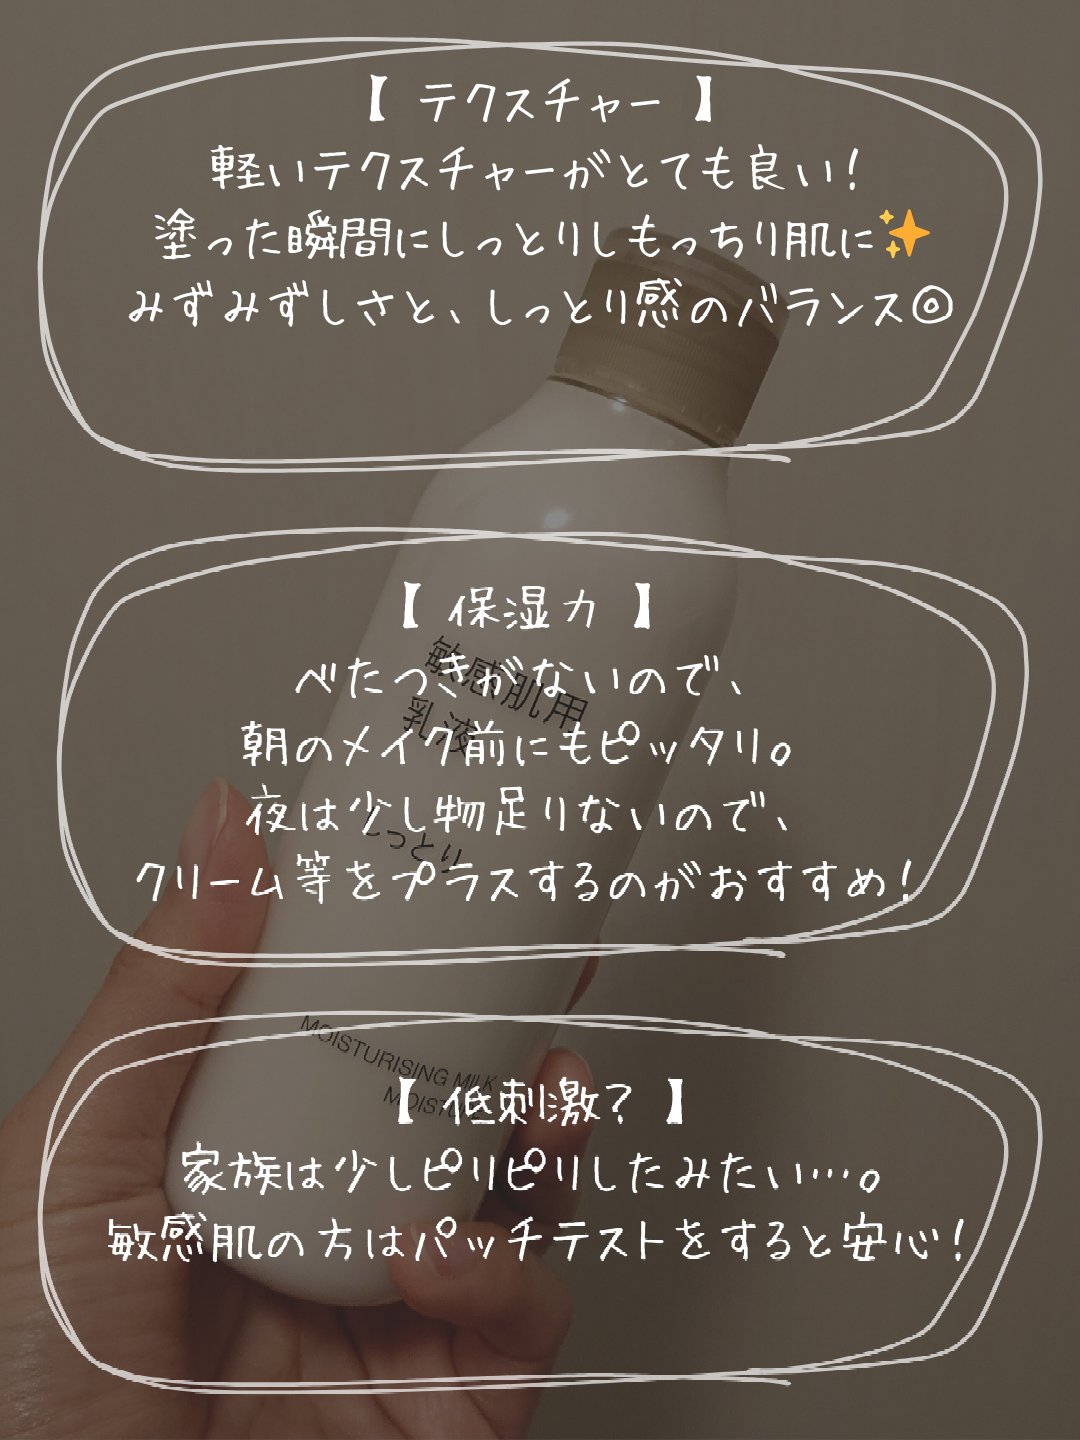 【 テクスチャー 】
軽いテクスチャーがとても良い!
塗った瞬間にしっとりしもっちり肌に✨
みずみずしさと、しっとり感のバランス◎
【 保湿力 】
べたつきがないので、
朝のメイク前にもピッタリ。
夜は少し物足りないので、
クリーム等をプラスするのがおすすめ!
【 低刺激? 】
家族は少しピリピリしたみたい…。
敏感肌の方はパッチテストをすると安心!
敏感肌用
乳液
しっとり
MOISTURISING MILK